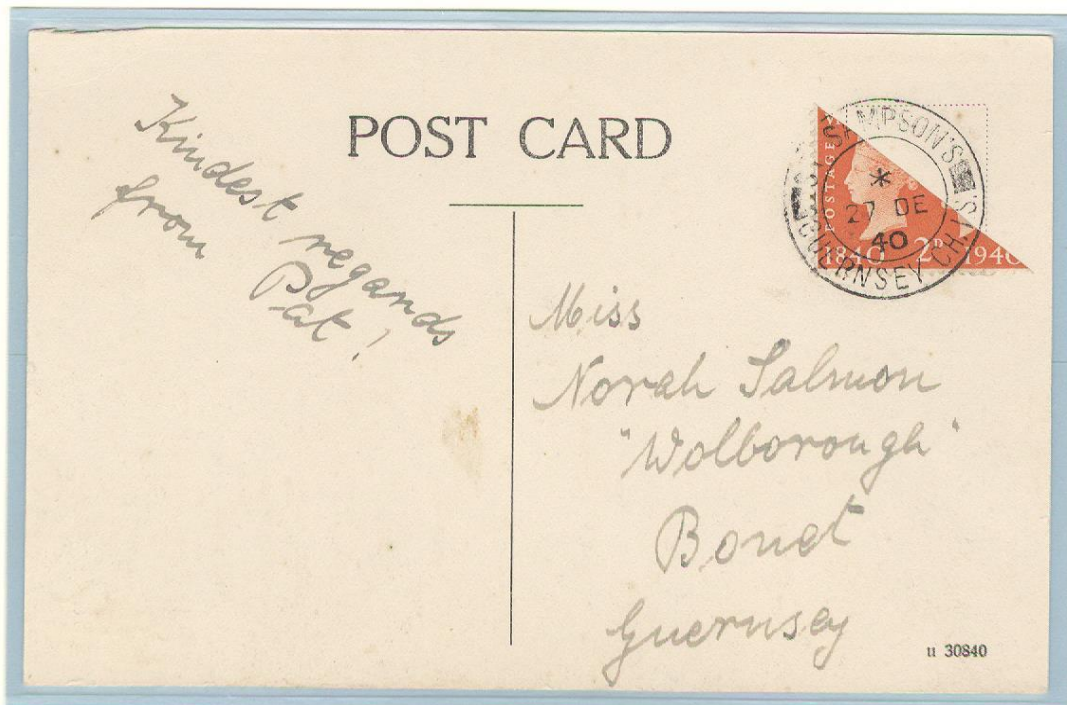 POST CARD
Kindest regards
from Pat!
ST SAMPSON'S
*
27 DE
40
GUERNSEY CH. IS.
POSTAGE
1840 2D 1940
Miss
Norah Salmon
"Wolborough"
Bouet
Guernsey
u 30840